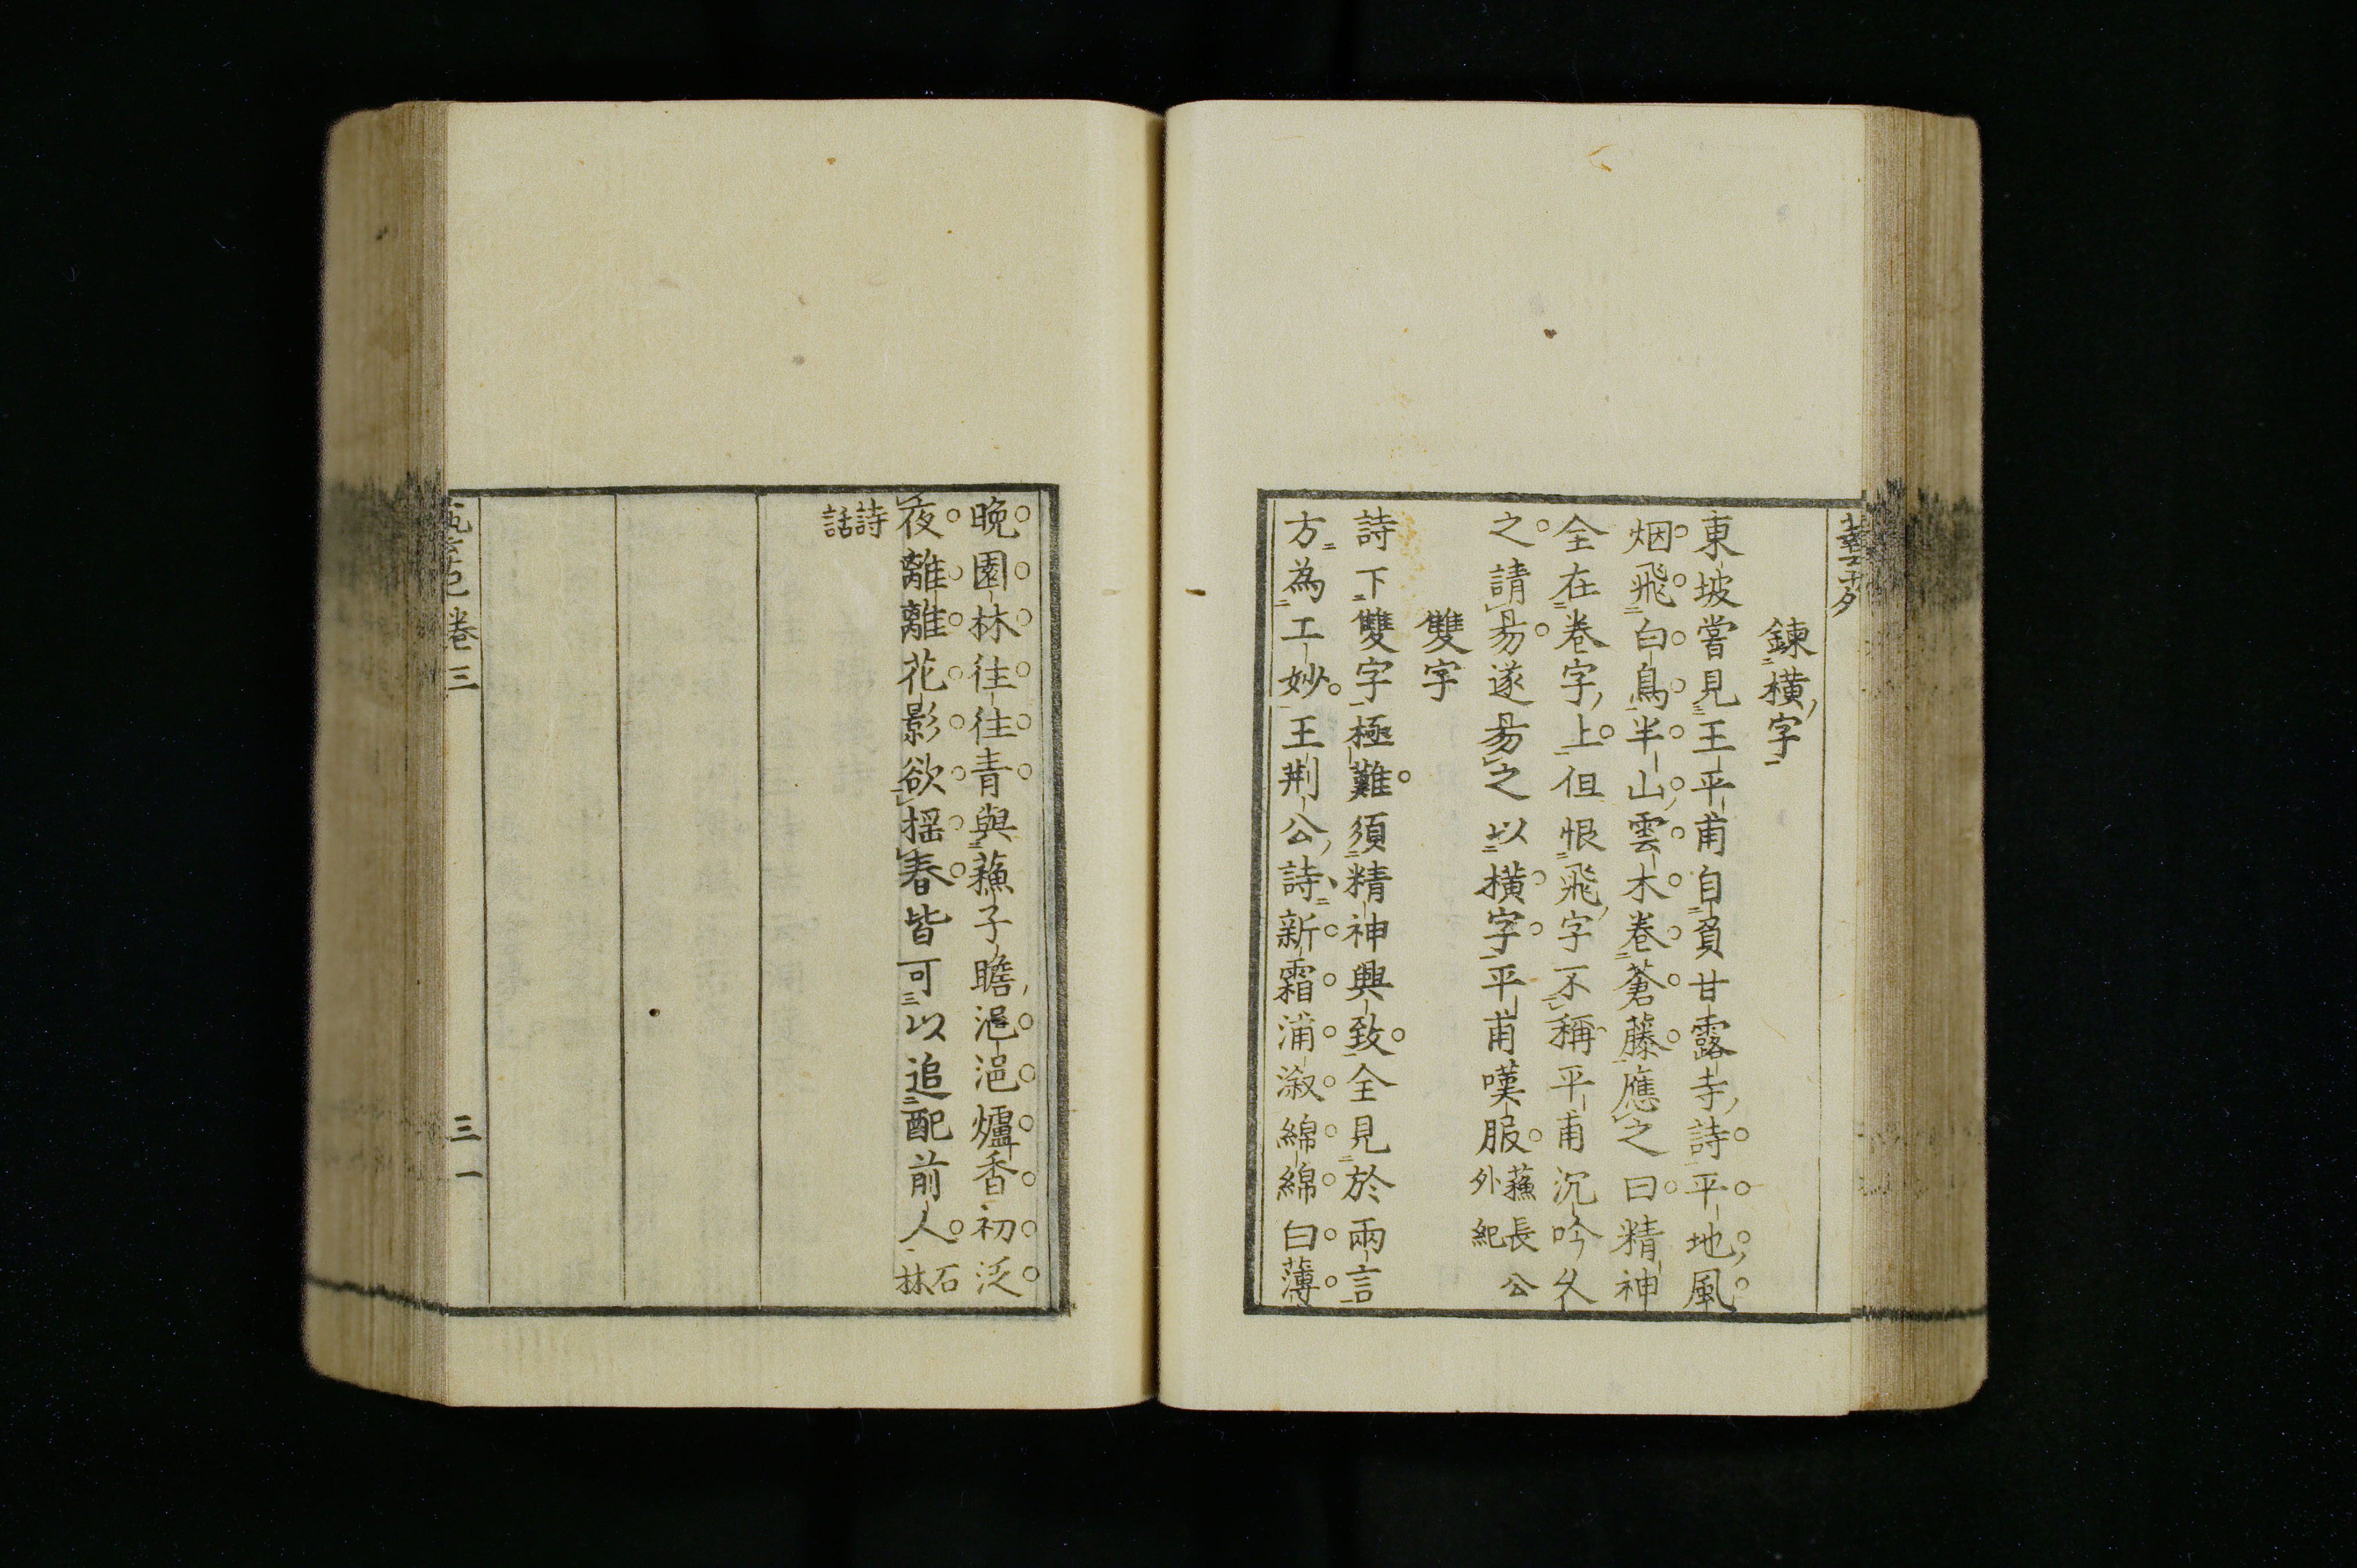 鍊橫字
東坡嘗見王平甫自負甘露寺詩平地風
烟飛白鳥半山雲木卷蒼藤應之曰精神
全在卷字上但恨飛字不稱平甫沉吟久
之請昜遂昜之以橫字平甫嘆服蘓長公外紀
雙字
詩下雙字極難須精神興致全見於兩言
方為工妙王荆公詩新霜浦溆綿綿白薄
晚園林往往青與蘓子瞻浥浥爐香初泛
夜離離花影欲揺春皆可以追配前人石林
詩話
卷三
三一